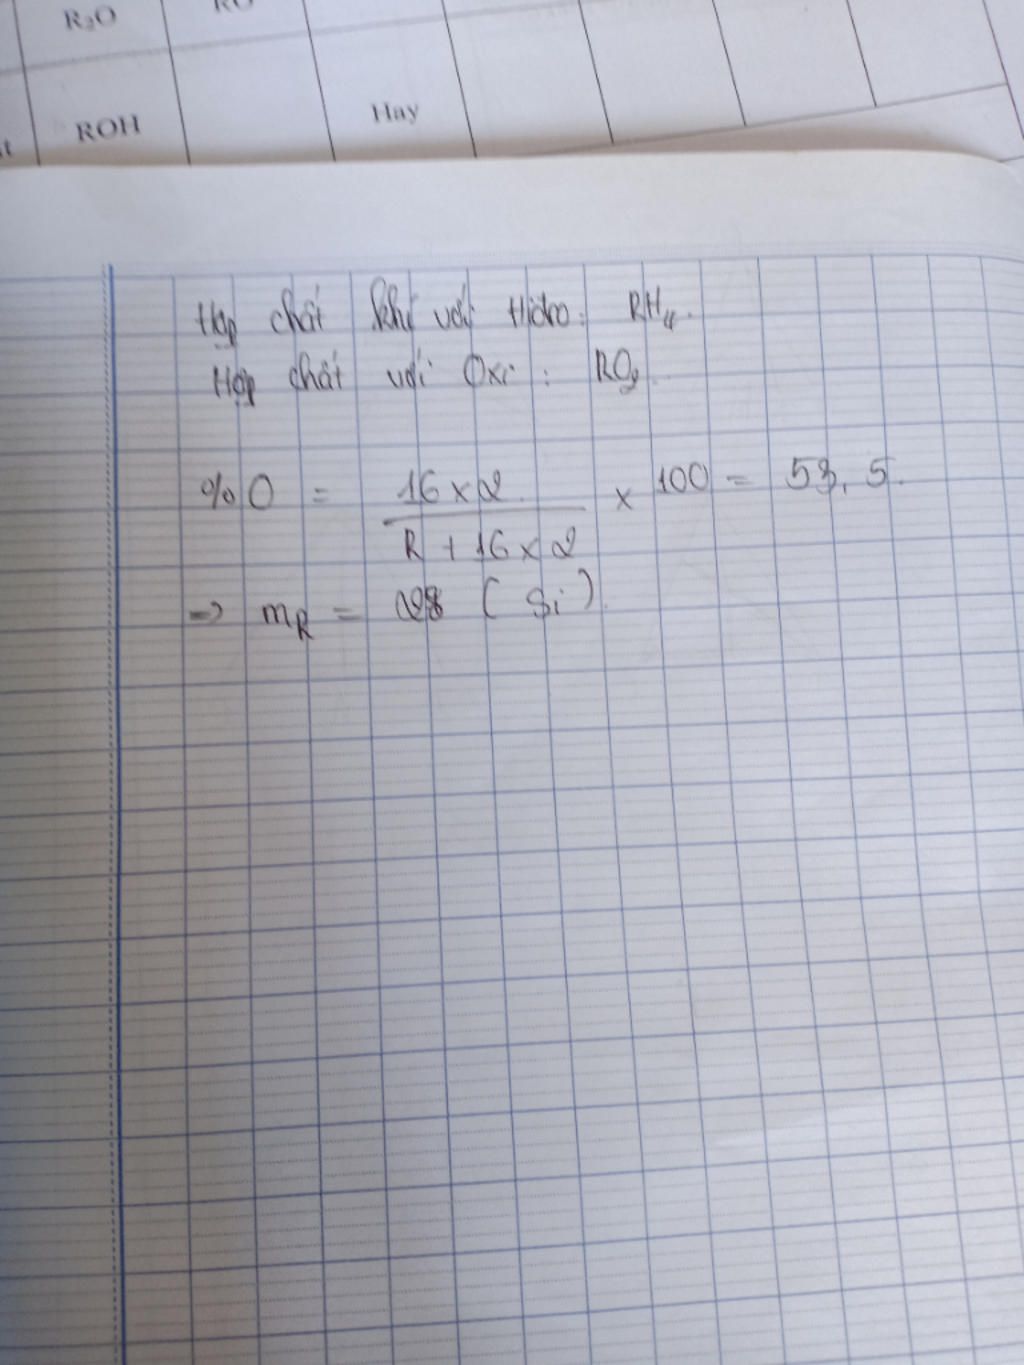 R₂O RO
ROH Hay
Hợp chất khí với Hidro: RH₄.
Hợp chất với Oxi: RO₂
%O = 16 x 2 / R + 16 x 2 x 100 = 53,5.
=> mR = 28 (Si).